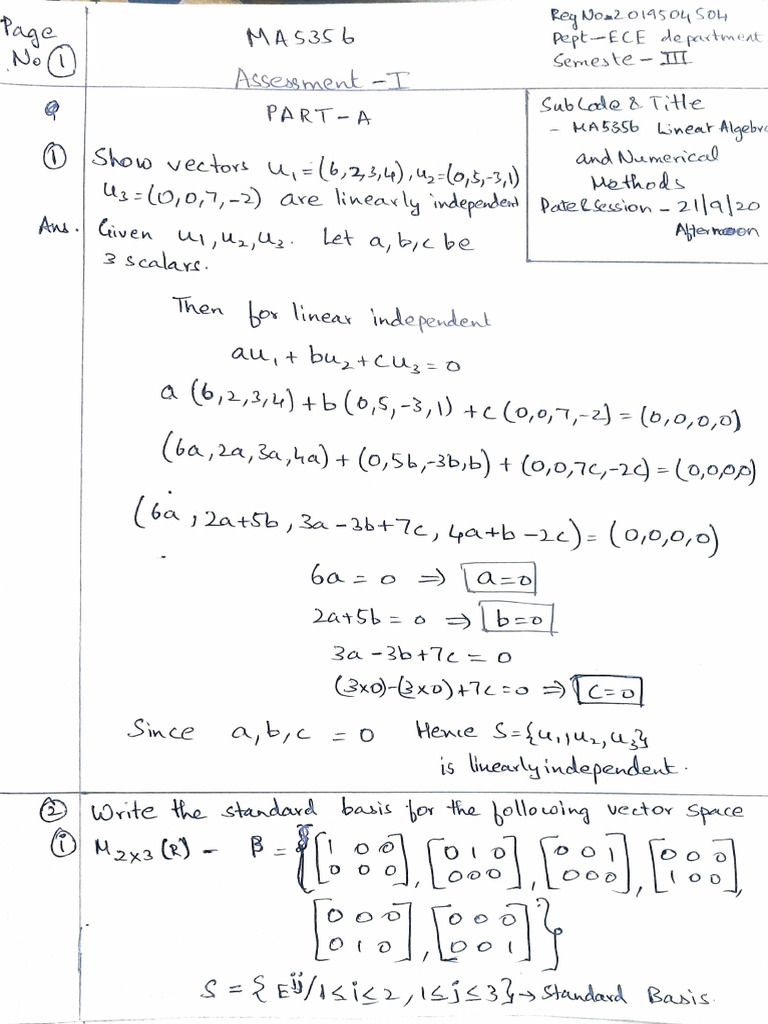 Page
No ①
MA5356
Assessment - I
Reg No - 2019504504
Dept - ECE department
Semeste - III
PART-A
Sub Code & Title
- MA5356 Linear Algebra
and Numerical
Methods
Date & Session - 21/9/20
Afternoon
① Show vectors u₁=(6,2,3,4), u₂=(0,5,-3,1)
u₃=(0,0,7,-2) are linearly independent
Ans. Given u₁,u₂,u₃. Let a,b,c be
3 scalars.
Then for linear independent
au₁ + bu₂ + cu₃ = 0
a(6,2,3,4)+b(0,5,-3,1)+c(0,0,7,-2)=(0,0,0,0)
(6a,2a,3a,4a)+(0,5b,-3b,b)+(0,0,7c,-2c)=(0,0,0,0)
(6a, 2a+5b, 3a-3b+7c, 4a+b-2c)=(0,0,0,0)
6a = 0 ⇒ a=0
2a+5b = 0 ⇒ b=0
3a-3b+7c = 0
(3x0)-(3x0)+7c=0 ⇒ c=0
Since a,b,c = 0 Hence S={u₁,u₂,u₃}
is linearly independent.
② Write the standard basis for the following vector space
ⓘ M₂ₓ₃(R) - β = {[1 0 0 0 0 0], [0 1 0 0 0 0], [0 0 1 0 0 0], [0 0 0 1 0 0],
[0 0 0 0 1 0], [0 0 0 0 0 1]}
S = {Eⁱʲ/1≤i≤2, 1≤j≤3} → Standard Basis.